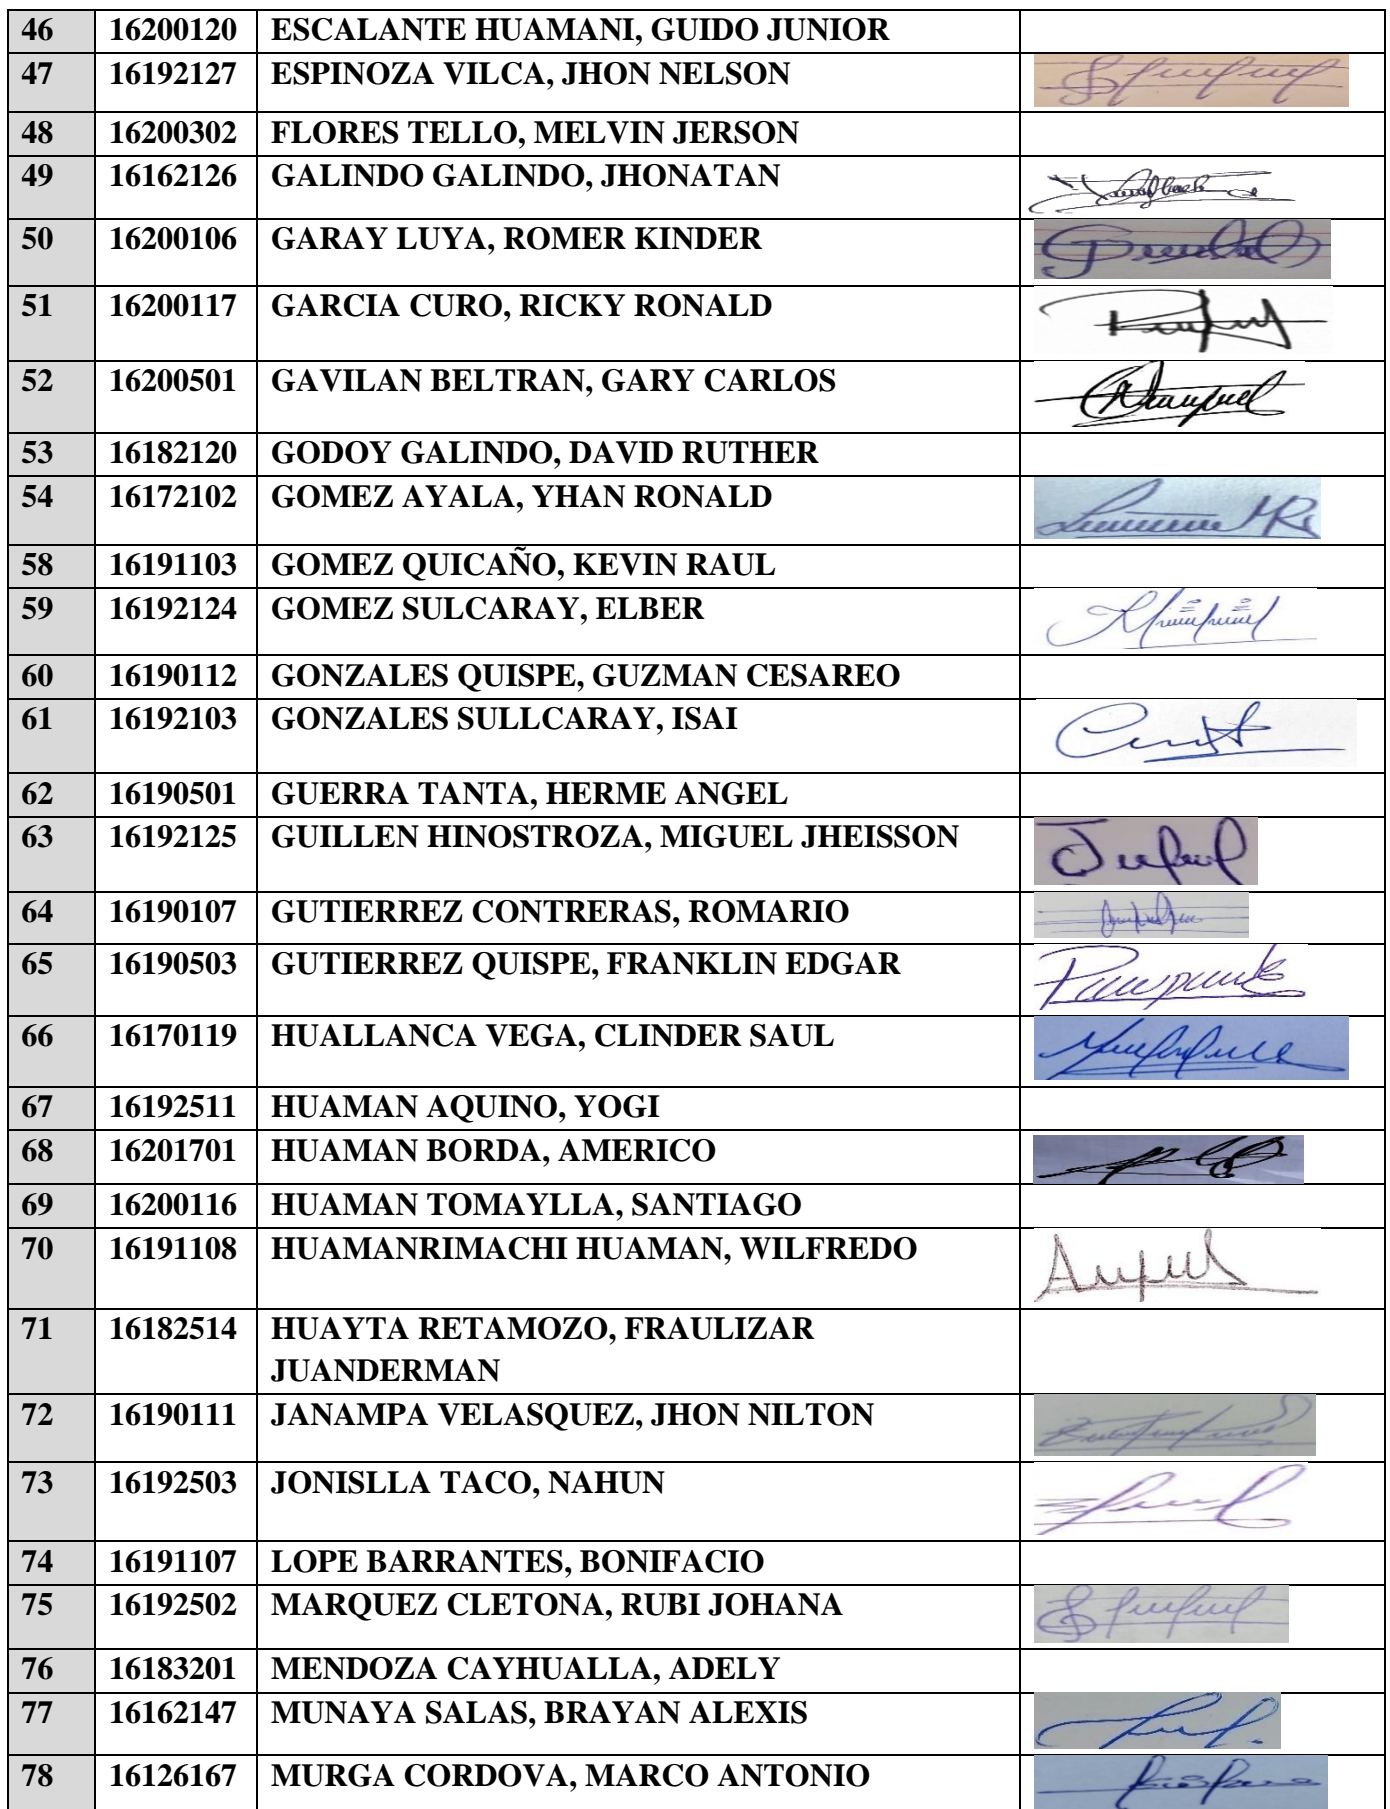 46 16200120 ESCALANTE HUAMANI, GUIDO JUNIOR
47 16192127 ESPINOZA VILCA, JHON NELSON
48 16200302 FLORES TELLO, MELVIN JERSON
49 16162126 GALINDO GALINDO, JHONATAN
50 16200106 GARAY LUYA, ROMER KINDER
51 16200117 GARCIA CURO, RICKY RONALD
52 16200501 GAVILAN BELTRAN, GARY CARLOS
53 16182120 GODOY GALINDO, DAVID RUTHER
54 16172102 GOMEZ AYALA, YHAN RONALD
58 16191103 GOMEZ QUICAÑO, KEVIN RAUL
59 16192124 GOMEZ SULCARAY, ELBER
60 16190112 GONZALES QUISPE, GUZMAN CESAREO
61 16192103 GONZALES SULLCARAY, ISAI
62 16190501 GUERRA TANTA, HERME ANGEL
63 16192125 GUILLEN HINOSTROZA, MIGUEL JHEISSON
64 16190107 GUTIERREZ CONTRERAS, ROMARIO
65 16190503 GUTIERREZ QUISPE, FRANKLIN EDGAR
66 16170119 HUALLANCA VEGA, CLINDER SAUL
67 16192511 HUAMAN AQUINO, YOGI
68 16201701 HUAMAN BORDA, AMERICO
69 16200116 HUAMAN TOMAYLLA, SANTIAGO
70 16191108 HUAMANRIMACHI HUAMAN, WILFREDO
71 16182514 HUAYTA RETAMOZO, FRAULIZAR
JUANDERMAN
72 16190111 JANAMPA VELASQUEZ, JHON NILTON
73 16192503 JONISLLA TACO, NAHUN
74 16191107 LOPE BARRANTES, BONIFACIO
75 16192502 MARQUEZ CLETONA, RUBI JOHANA
76 16183201 MENDOZA CAYHUALLA, ADELY
77 16162147 MUNAYA SALAS, BRAYAN ALEXIS
78 16126167 MURGA CORDOVA, MARCO ANTONIO